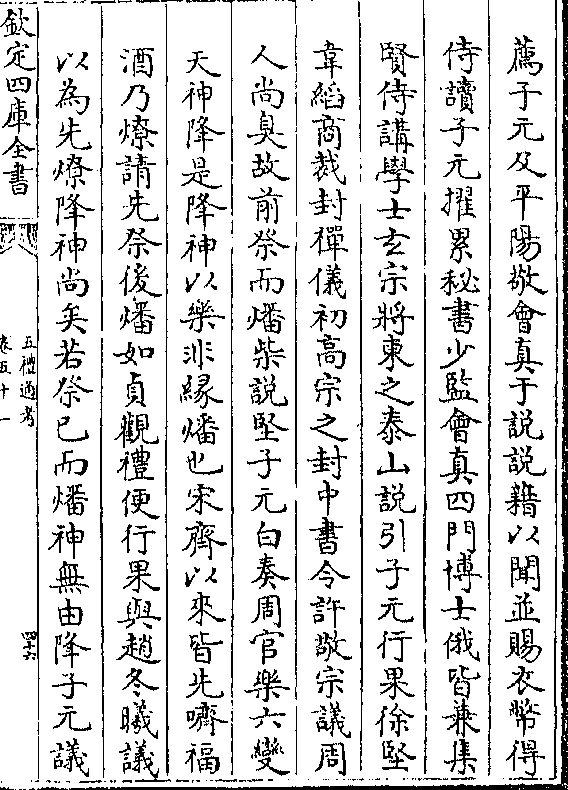 薦子元及平陽敬會真于説説籍以聞並賜衣幣得
侍讀子元擢累秘書少監會真四門博士俄皆兼集
賢侍講學士玄宗將東之泰山説引子元行果徐堅
韋縚商裁封禪儀初高宗之封中書令許敬宗議周
人尚臭故前祭而燔柴説堅子元白奏周官樂六變
天神降是降神以樂非緣燔也宋齊以來皆先嚌福
酒乃燎請先祭後燔如貞觀禮便行果與趙冬曦議
以為先燎降神尚矣若祭已而燔神無由降子元議
欽定四庫全書
五禮通考
卷五十一
四十六